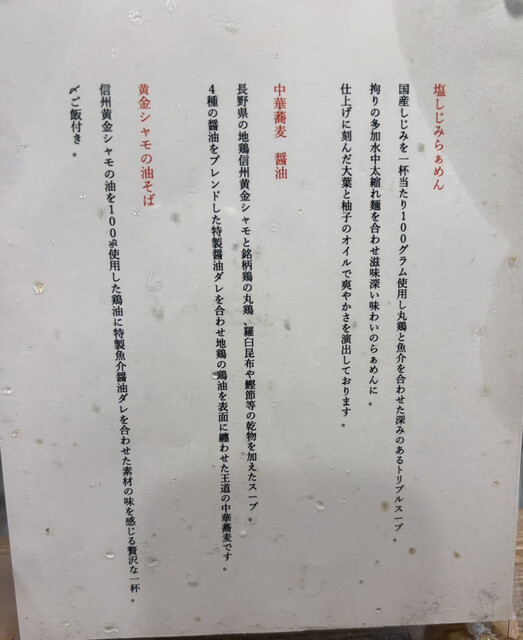 塩しじみらぁめん
国産しじみを一杯当たり100グラム使用し丸鶏と魚介を合わせた深みのあるトリプルスープ。
拘りの多加水中太縮れ麺を合わせ滋味深い味わいのらぁめんに。
仕上げに刻んだ大葉と柚子のオイルで爽やかさを演出しております。
中華蕎麦 醤油
長野県の地鶏信州黄金シャモと銘柄鶏の丸鶏、羅臼昆布や鰹節等の乾物を加えたスープ。
4種の醤油をブレンドした特製醤油ダレを合わせ地鶏の鶏油を表面に纏わせた王道の中華蕎麦です。
黄金シャモの油そば
信州黄金シャモの油を100%使用した鶏油に特製魚介醤油ダレを合わせた素材の味を感じる贅沢な一杯。
〆ご飯付き。